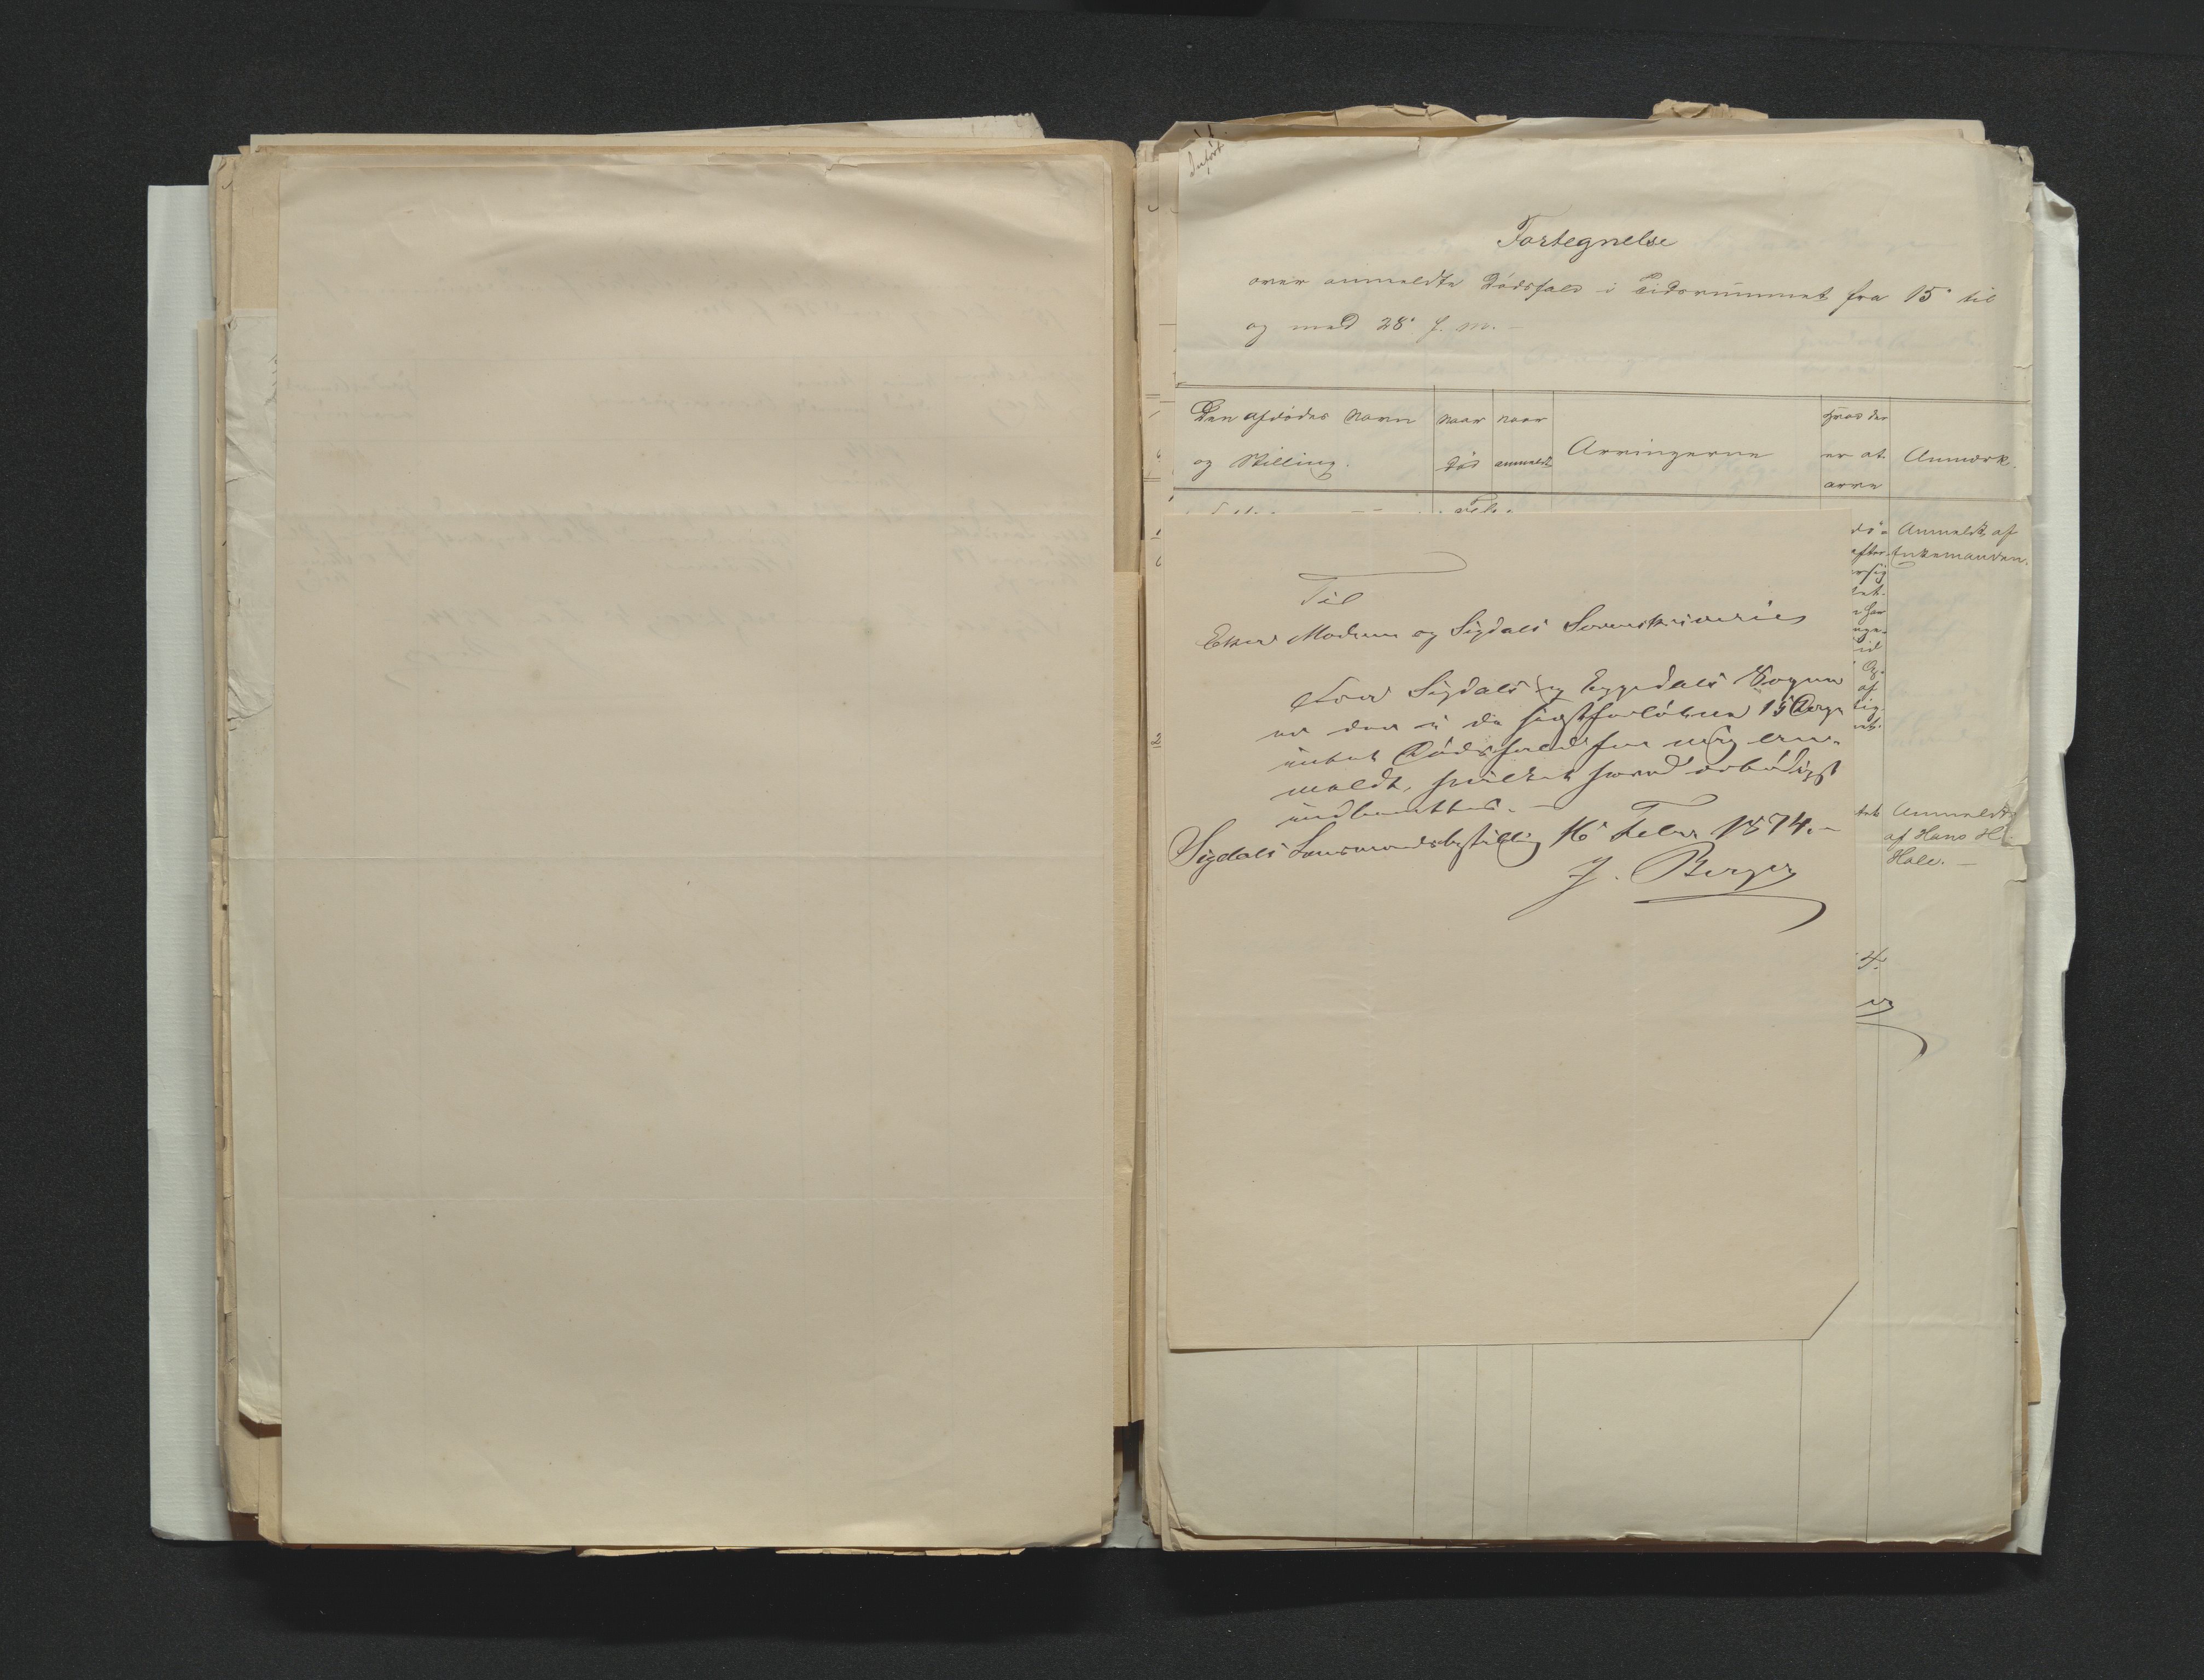 Indført
Fortegnelse
over anmeldte Dødsfald i Tidsrummet fra 15' til
og med 28' f. m. -
Den afdødes Navn
og Stilling.
Naar
død
Naar
anmeldt
Arvingerne
Hvad der
er at
arve
Anmærk.
Febr.
Anmeldt af
Enkemanden.
Til
Eker Modum og Sigdals Sorenskriveri
For Sigdals og Eggedals Sogne
er der i de sidstforløbne 15 Dage
intet Dødsfald for mig an-
meldt, hvilket herved ærbødigst
indberettes. -
Sigdals Lensmandsbestilling 16' Febr. 1874. -
J. Berger
Anmeldt
af Hans H
Hole. -